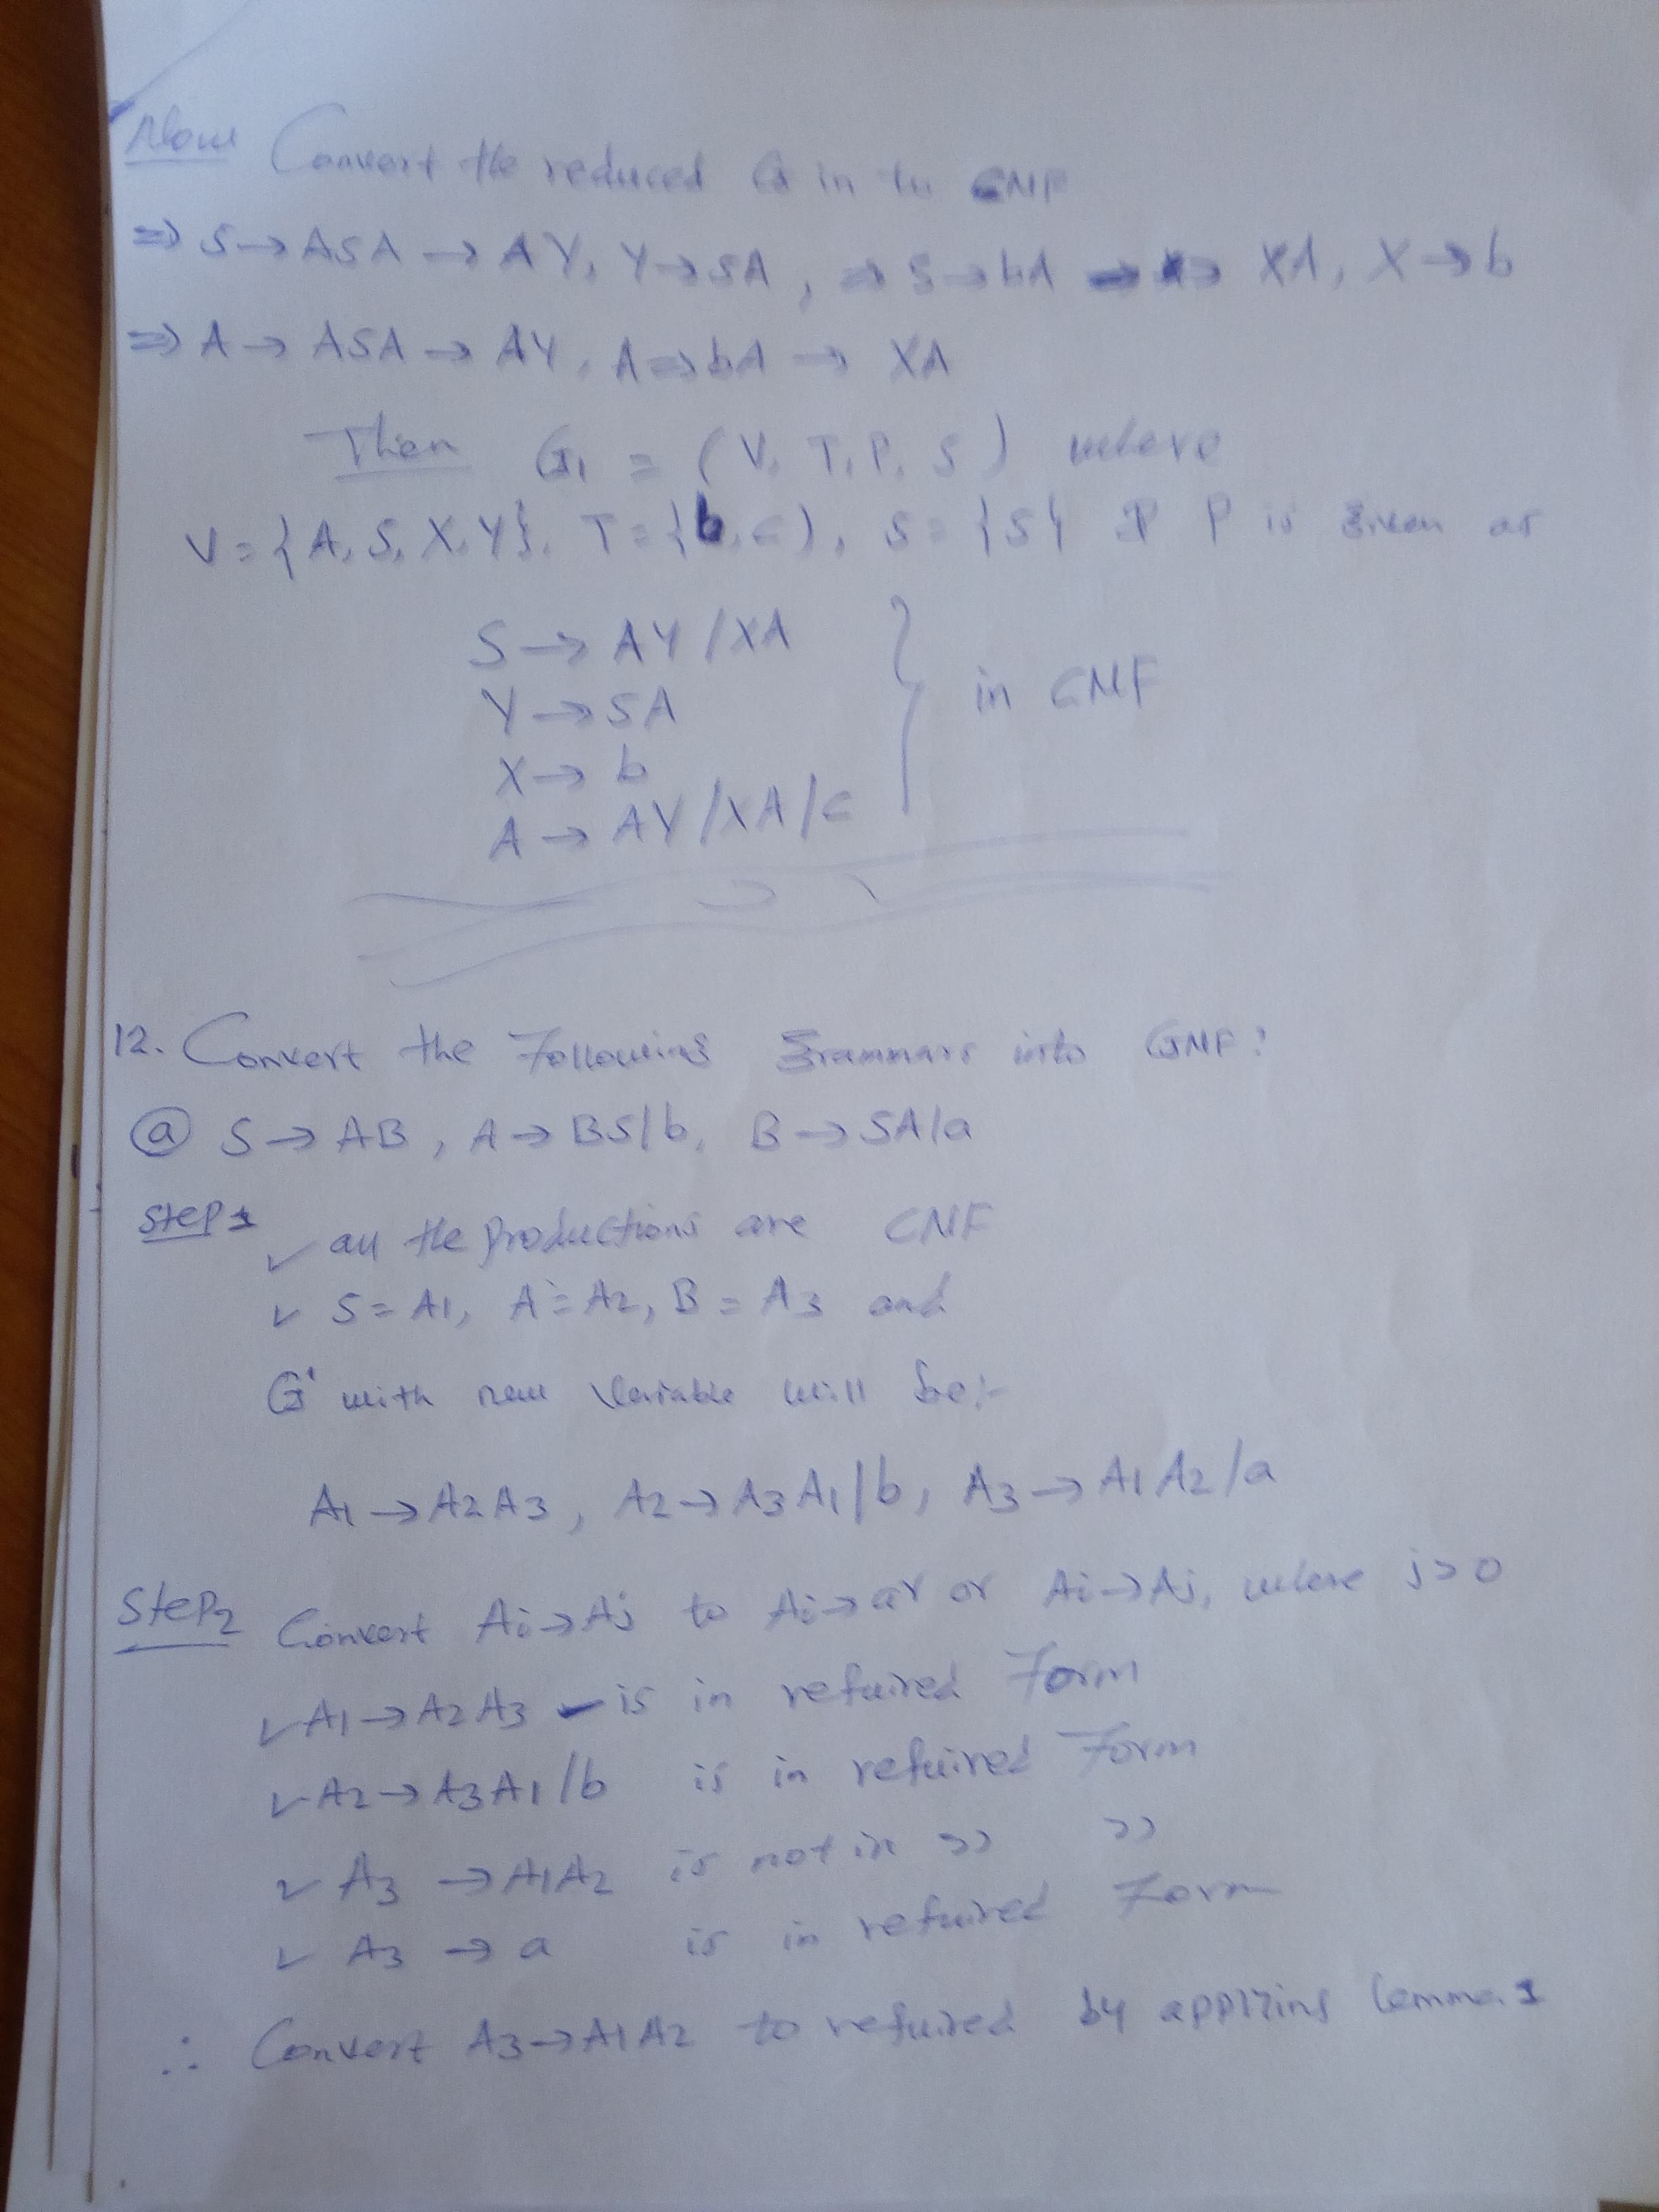 Now Convert the reduced G in to CNF
⇒ S → ASA → AY, Y → SA, ⇒ S → bA → XA, X → b
⇒ A → ASA → AY, A ⇒ bA → XA
Then G1 = (V, T, P, S) where
V = {A, S, X, Y}, T = {b, c), S = {S} P is given as
S → AY / XA
Y → SA
X → b
A → AY / XA / c
in CNF
12. Convert the Following grammars into GNF:
ⓐ S → AB, A → BS|b, B → SA|a
Step 1
✓ all the productions are CNF
✓ S = A1, A = A2, B = A3 and
G' with new variable will be:-
A1 → A2 A3, A2 → A3 A1 | b, A3 → A1 A2 / a
Step 2 Convert Ai → Aj to Ai → ar or Ai → Aj, where j > 0
✓ A1 → A2 A3 - is in required Form
✓ A2 → A3 A1 / b is in required Form
✓ A3 → A1 A2 is not in >> >>
✓ A3 → a is in required Form
∴ Convert A3 → A1 A2 to required by applying Lemma 1